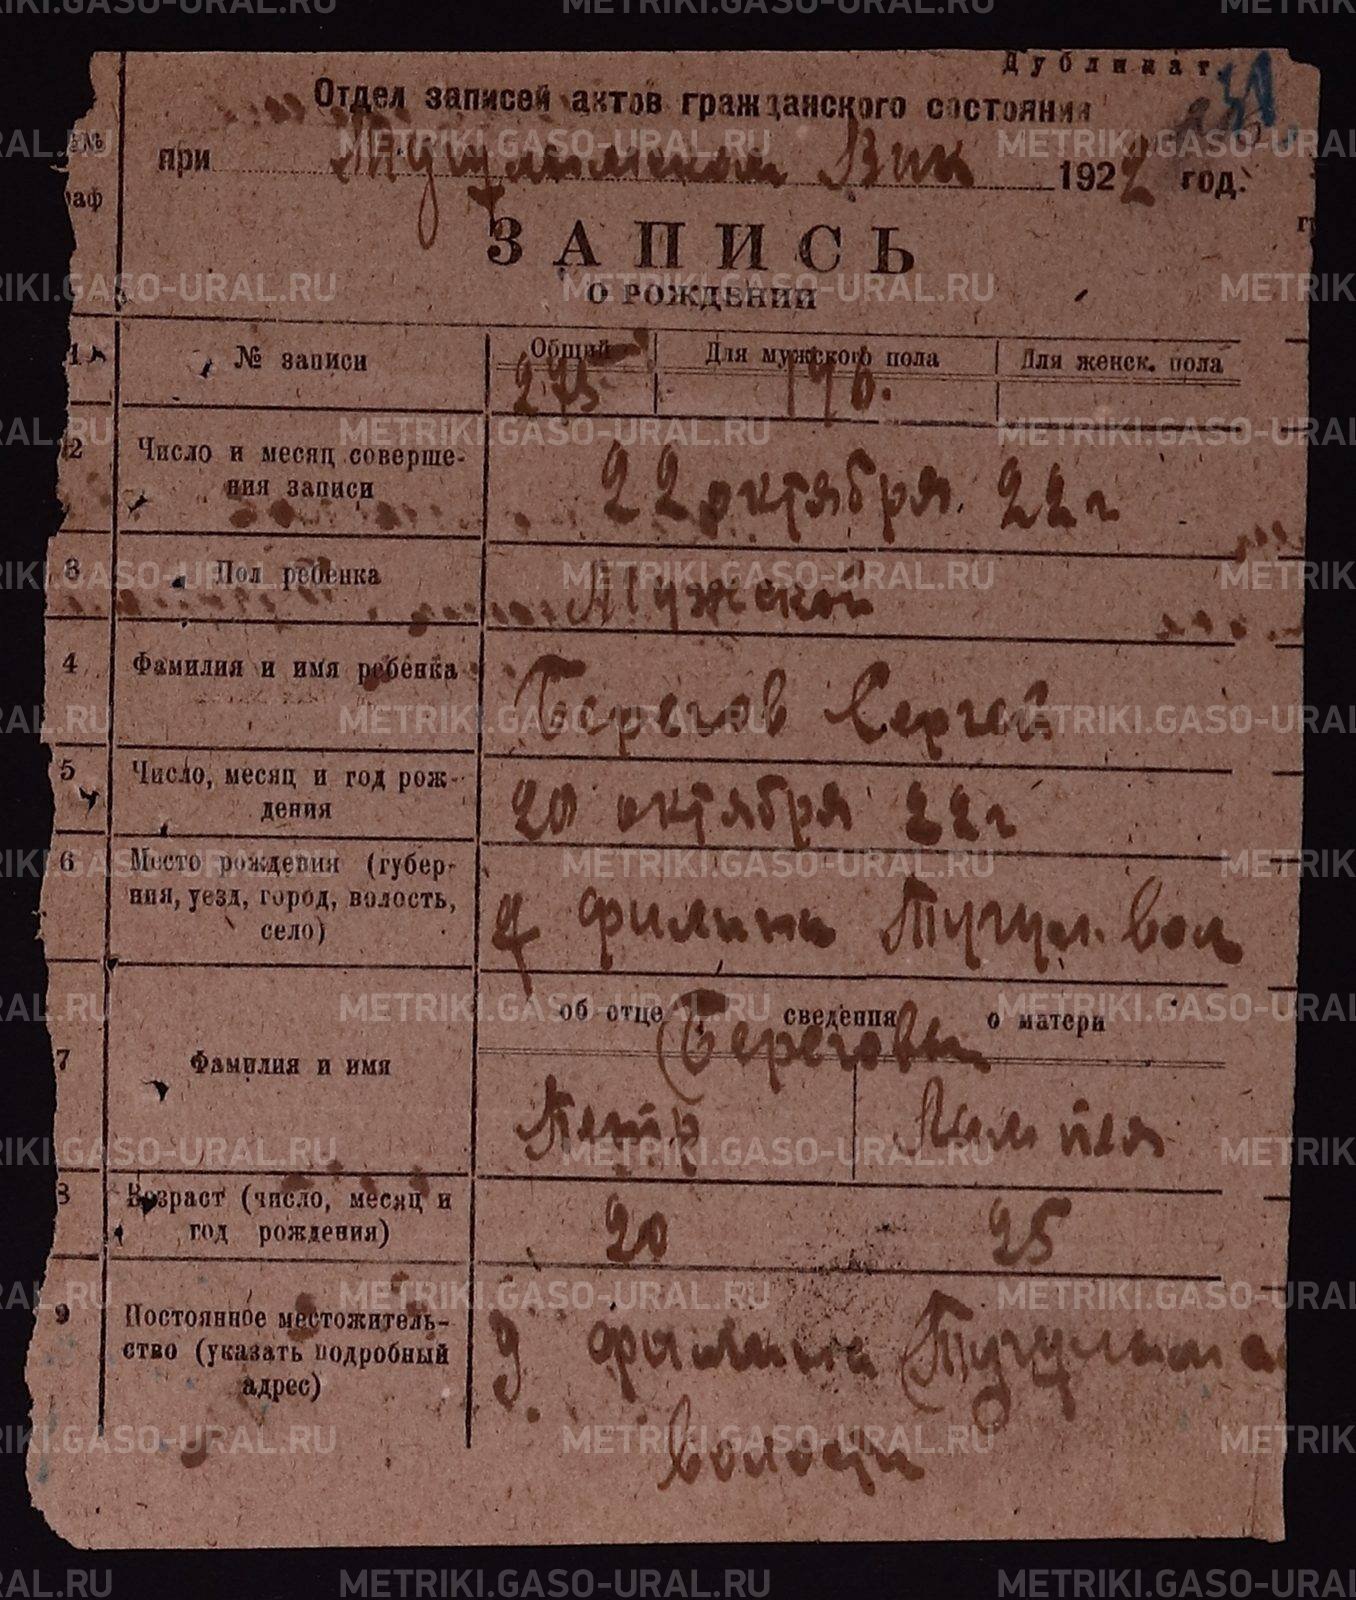 Дубликат
51
Отдел записей актов гражданского состояния
при Тугулымском Вик 1922 год.
ЗАПИСЬ
О РОЖДЕНИИ
№
раф
1 № записи Общий Для мужского пола Для женск. пола
275 146.
2 Число и месяц соверше-
ния записи
22 октября 22 г
3 Пол ребенка Мужской
4 Фамилия и имя ребенка Берегов Сергей
5 Число, месяц и год рож-
дения
20 октября 22 г
6 Место рождения (губер-
ния, уезд, город, волость,
село)
д Филина Тугул. вол
об отце сведения о матери
Береговы
7 Фамилия и имя
Петр
8 Возраст (число, месяц и
год рождения)
20 25
9 Постоянное местожитель-
ство (указать подробный
адрес)
д. Филина
волости
METRIKI.GASO-URAL.RU